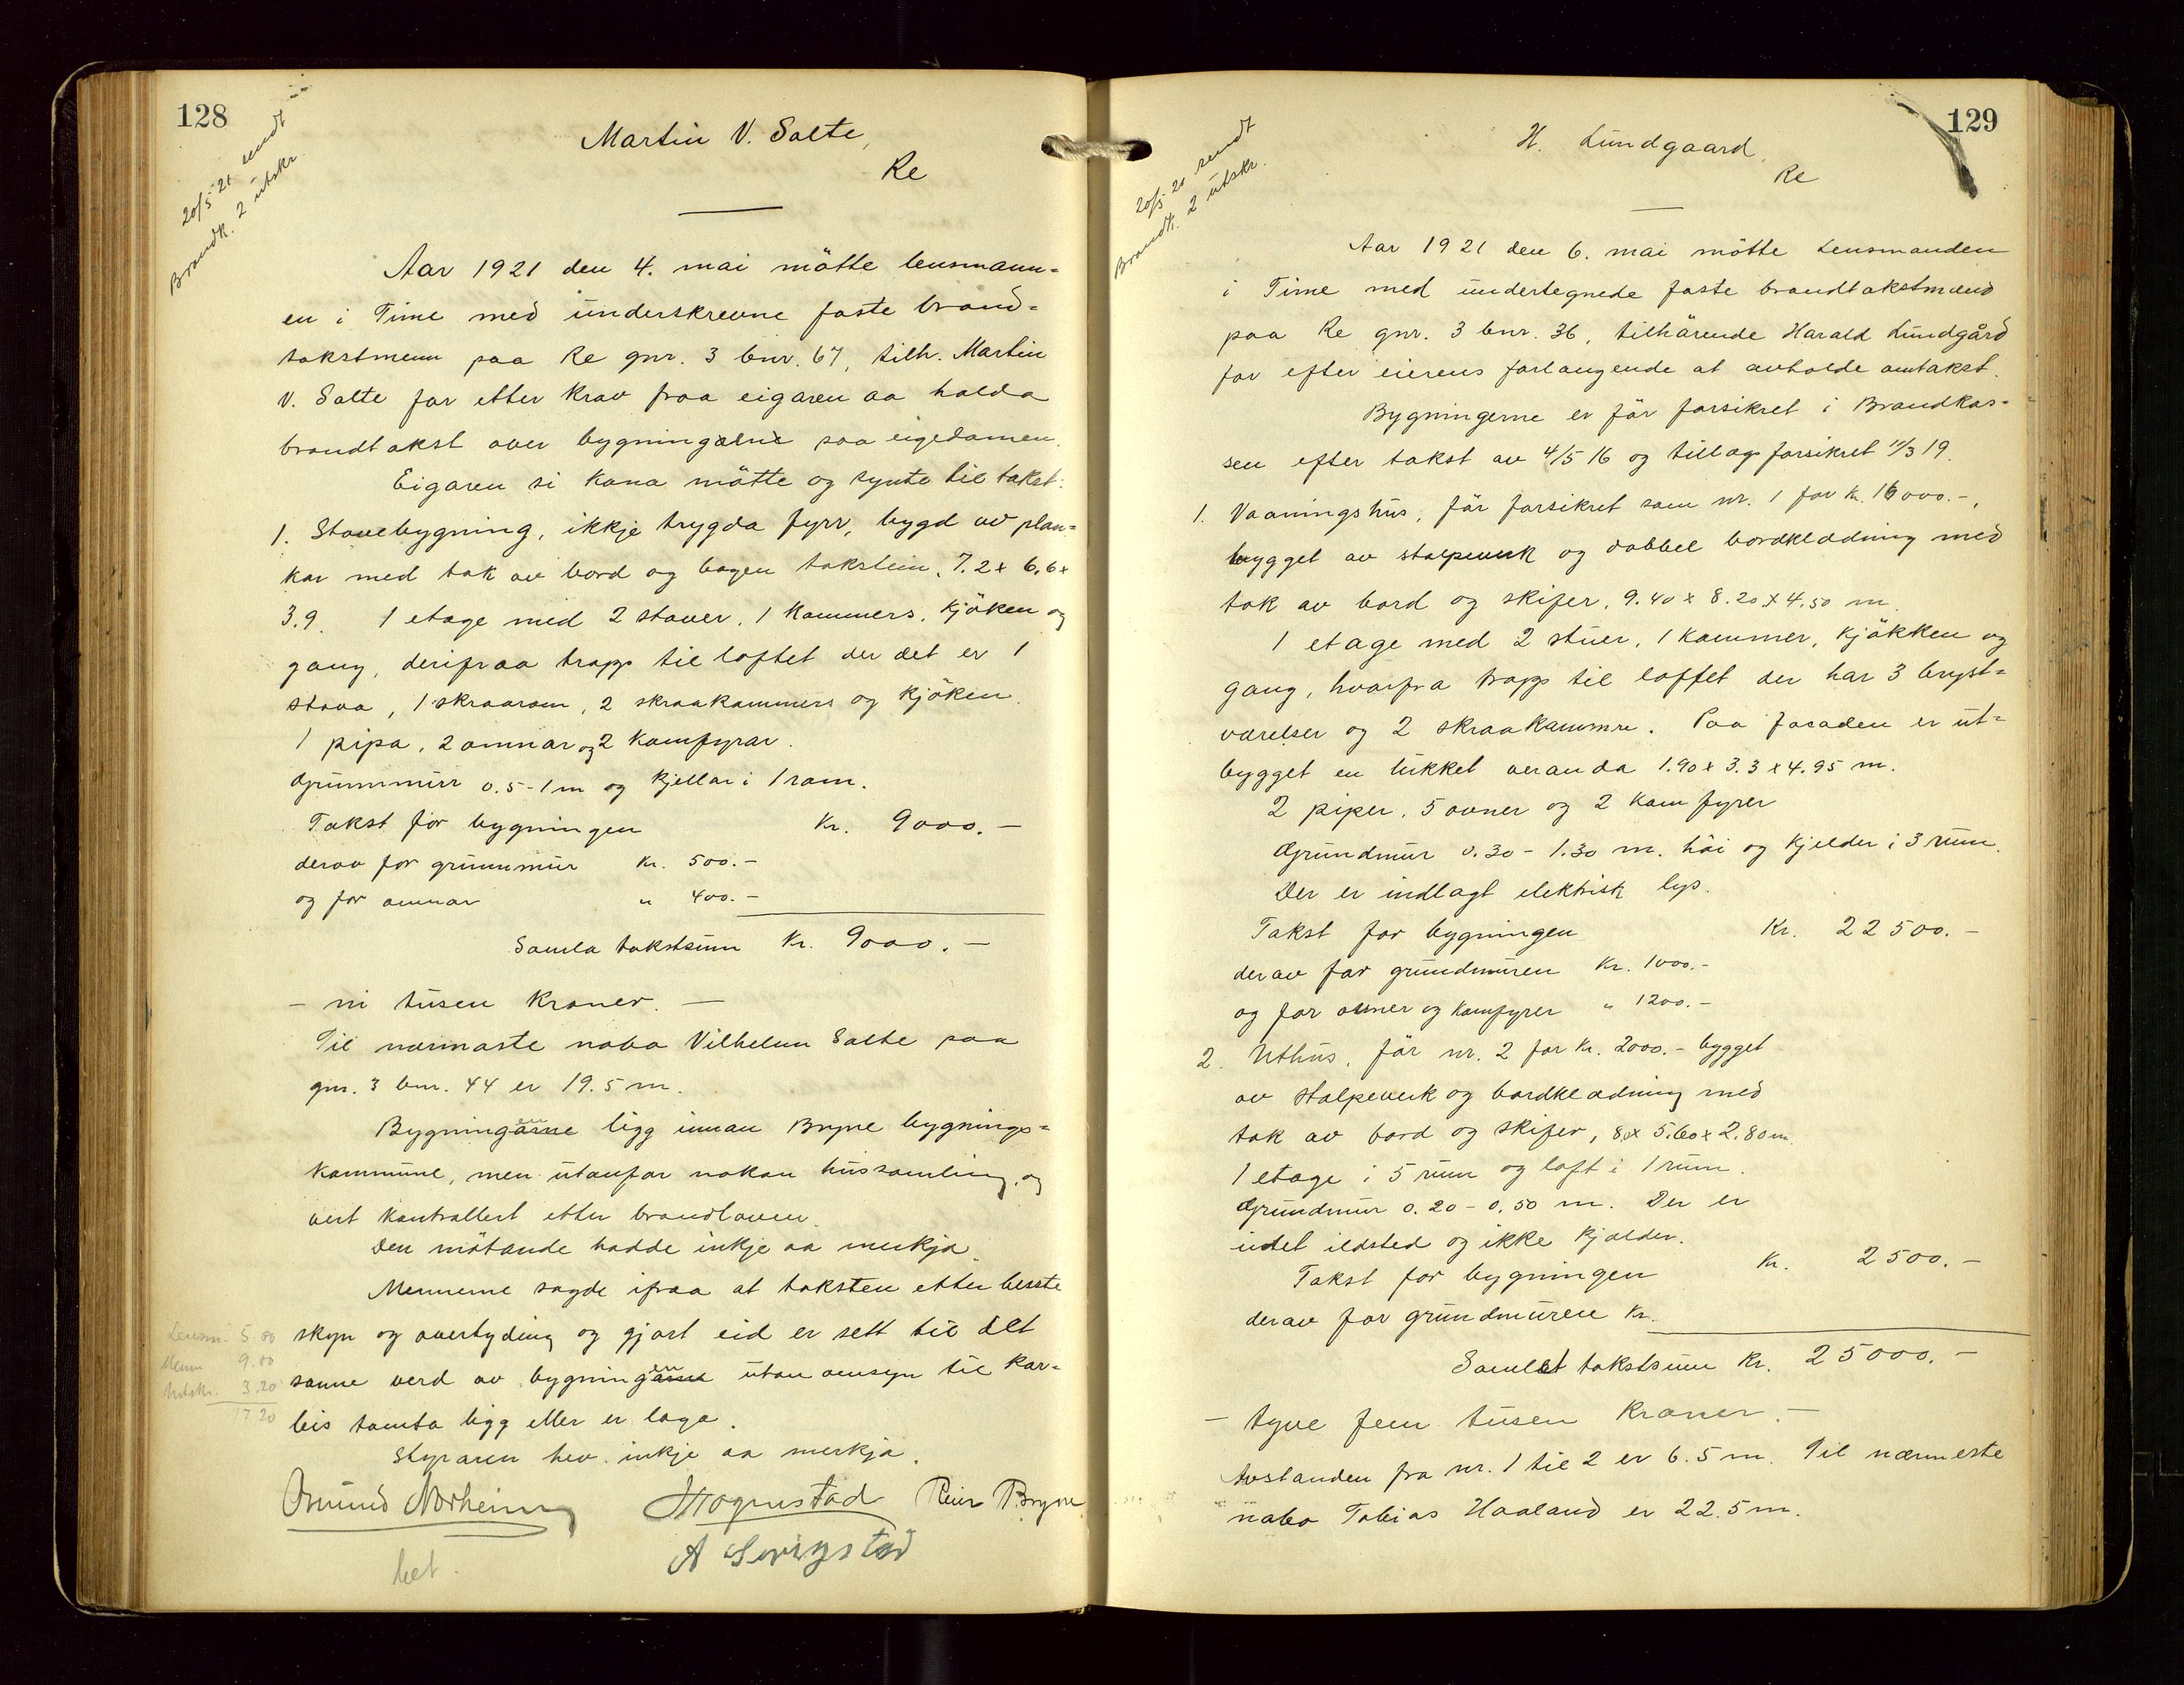 128
20/5 21 sendt
Brandk. 2 utskr.
Martin V. Salte,
Re
Aar 1921 den 4. mai mötte lensmann-
en i Time med underskrevne faste brand-
takstmenn paa Re gnr. 3 bnr. 67, tilh. Martin
V. Salte for etter krav fraa eigaren aa halda
brandtakst over bygningarne paa eigedomen.
Eigaren si kona mötte og synte til takst:
1. Stovebygning, ikkje trygda fyrr, bygd av plan-
kar med tak av bord og bogen takstein, 7.2 x 6.6 x
3.9. 1 etage med 2 stover, 1 kammers, kjöken og
gang, derifraa trapp til loftet der det er 1
stova, 1 skraarom, 2 skraakammers og kjöken.
1 pipa, 2 omnar og 2 komfyrar.
Grunnmur 0.5-1 m og kjellar i 1 rom.
Takst for bygningen Kr. 9000.-
derav for grunnmur Kr. 500.-
og for omnar " 400.-
Samla takstsum Kr. 9000.-
- ni tusen kroner. -
Til nærmaste nabo Vilhelm Salte paa
gnr. 3 bnr. 44 er 19.5 m.
Bygningarne ligg innan Bryne bygnings-
kommune, men utanfor nokon hussamling, og
vert kontrollert etter brandloven.
Den mötande hadde inkje aa merkja.
Mennerne sagde ifraa at taksten etter beste
skyn og overtyding og gjort eid er sett til det
sanne verd av bygningarne utan omsyn til kor-
leis tomta ligg eller er laga.
Styraren hev inkje aa merkja.
Lensm. 5.00
Menn 9.00
Utskr. 3.20
17 20
Osmund Norheim Hognestad Reier Bryne
A Serigstad
bet.
129
20/5 21 sendt
Brandk. 2 utskr.
H. Lundgaard,
Re
Aar 1921 den 6. mai mötte lensmanden
i Time med undertegnede faste brandtakstmænd
paa Re gnr. 3 bnr. 36, tilhörende Harald Lundgård
for efter eierens forlangende at avholde omtakst.
Bygningerne er för forsikret i Brandkas-
sen efter takst av 4/5 16 og tillægsforsikret 11/3 19.
1. Vaaningshus, för forsikret som nr. 1 for Kr. 16000.-,
bygget av stolpeverk og dobbel bordklædning med
tak av bord og skifer, 9.40 x 8.20 x 4.50 m.
1 etage med 2 stuer, 1 kammer, kjökken og
gang, hvorfra trapp til loftet der har 3 bryst-
værelser og 2 skraakammre. Paa fasaden er ut-
bygget en lukket veranda 1.90 x 3.3 x 4.95 m.
2 piper, 5 ovner og 2 komfyrer
Grundmur 0.30 - 1.30 m. höi og kjelder i 3 rum.
Der er indlagt elektrisk lys.
Takst for bygningen Kr. 22500.-
derav for grundmuren Kr. 1000.-
og for ovner og komfyrer " 1200.-
2. Uthus, för nr. 2 for Kr. 2000.- bygget
av stolpeverk og bordklædning med
tak av bord og skifer, 8.x 5.60 x 2.80 m.
1 etage i 5 rum og loft i 1 rum.
Grundmur 0.20 - 0.50 m. Der er
intet ildsted og ikke kjælder.
Takst for bygningen Kr. 2500.-
derav for grundmuren Kr.
Samlet takstsum Kr. 25000.-
- tyve fem tusen kroner. -
Avstanden fra nr. 1 til 2 er 6.5 m. Til nærmeste
nabo Tobias Haaland er 22.5 m.